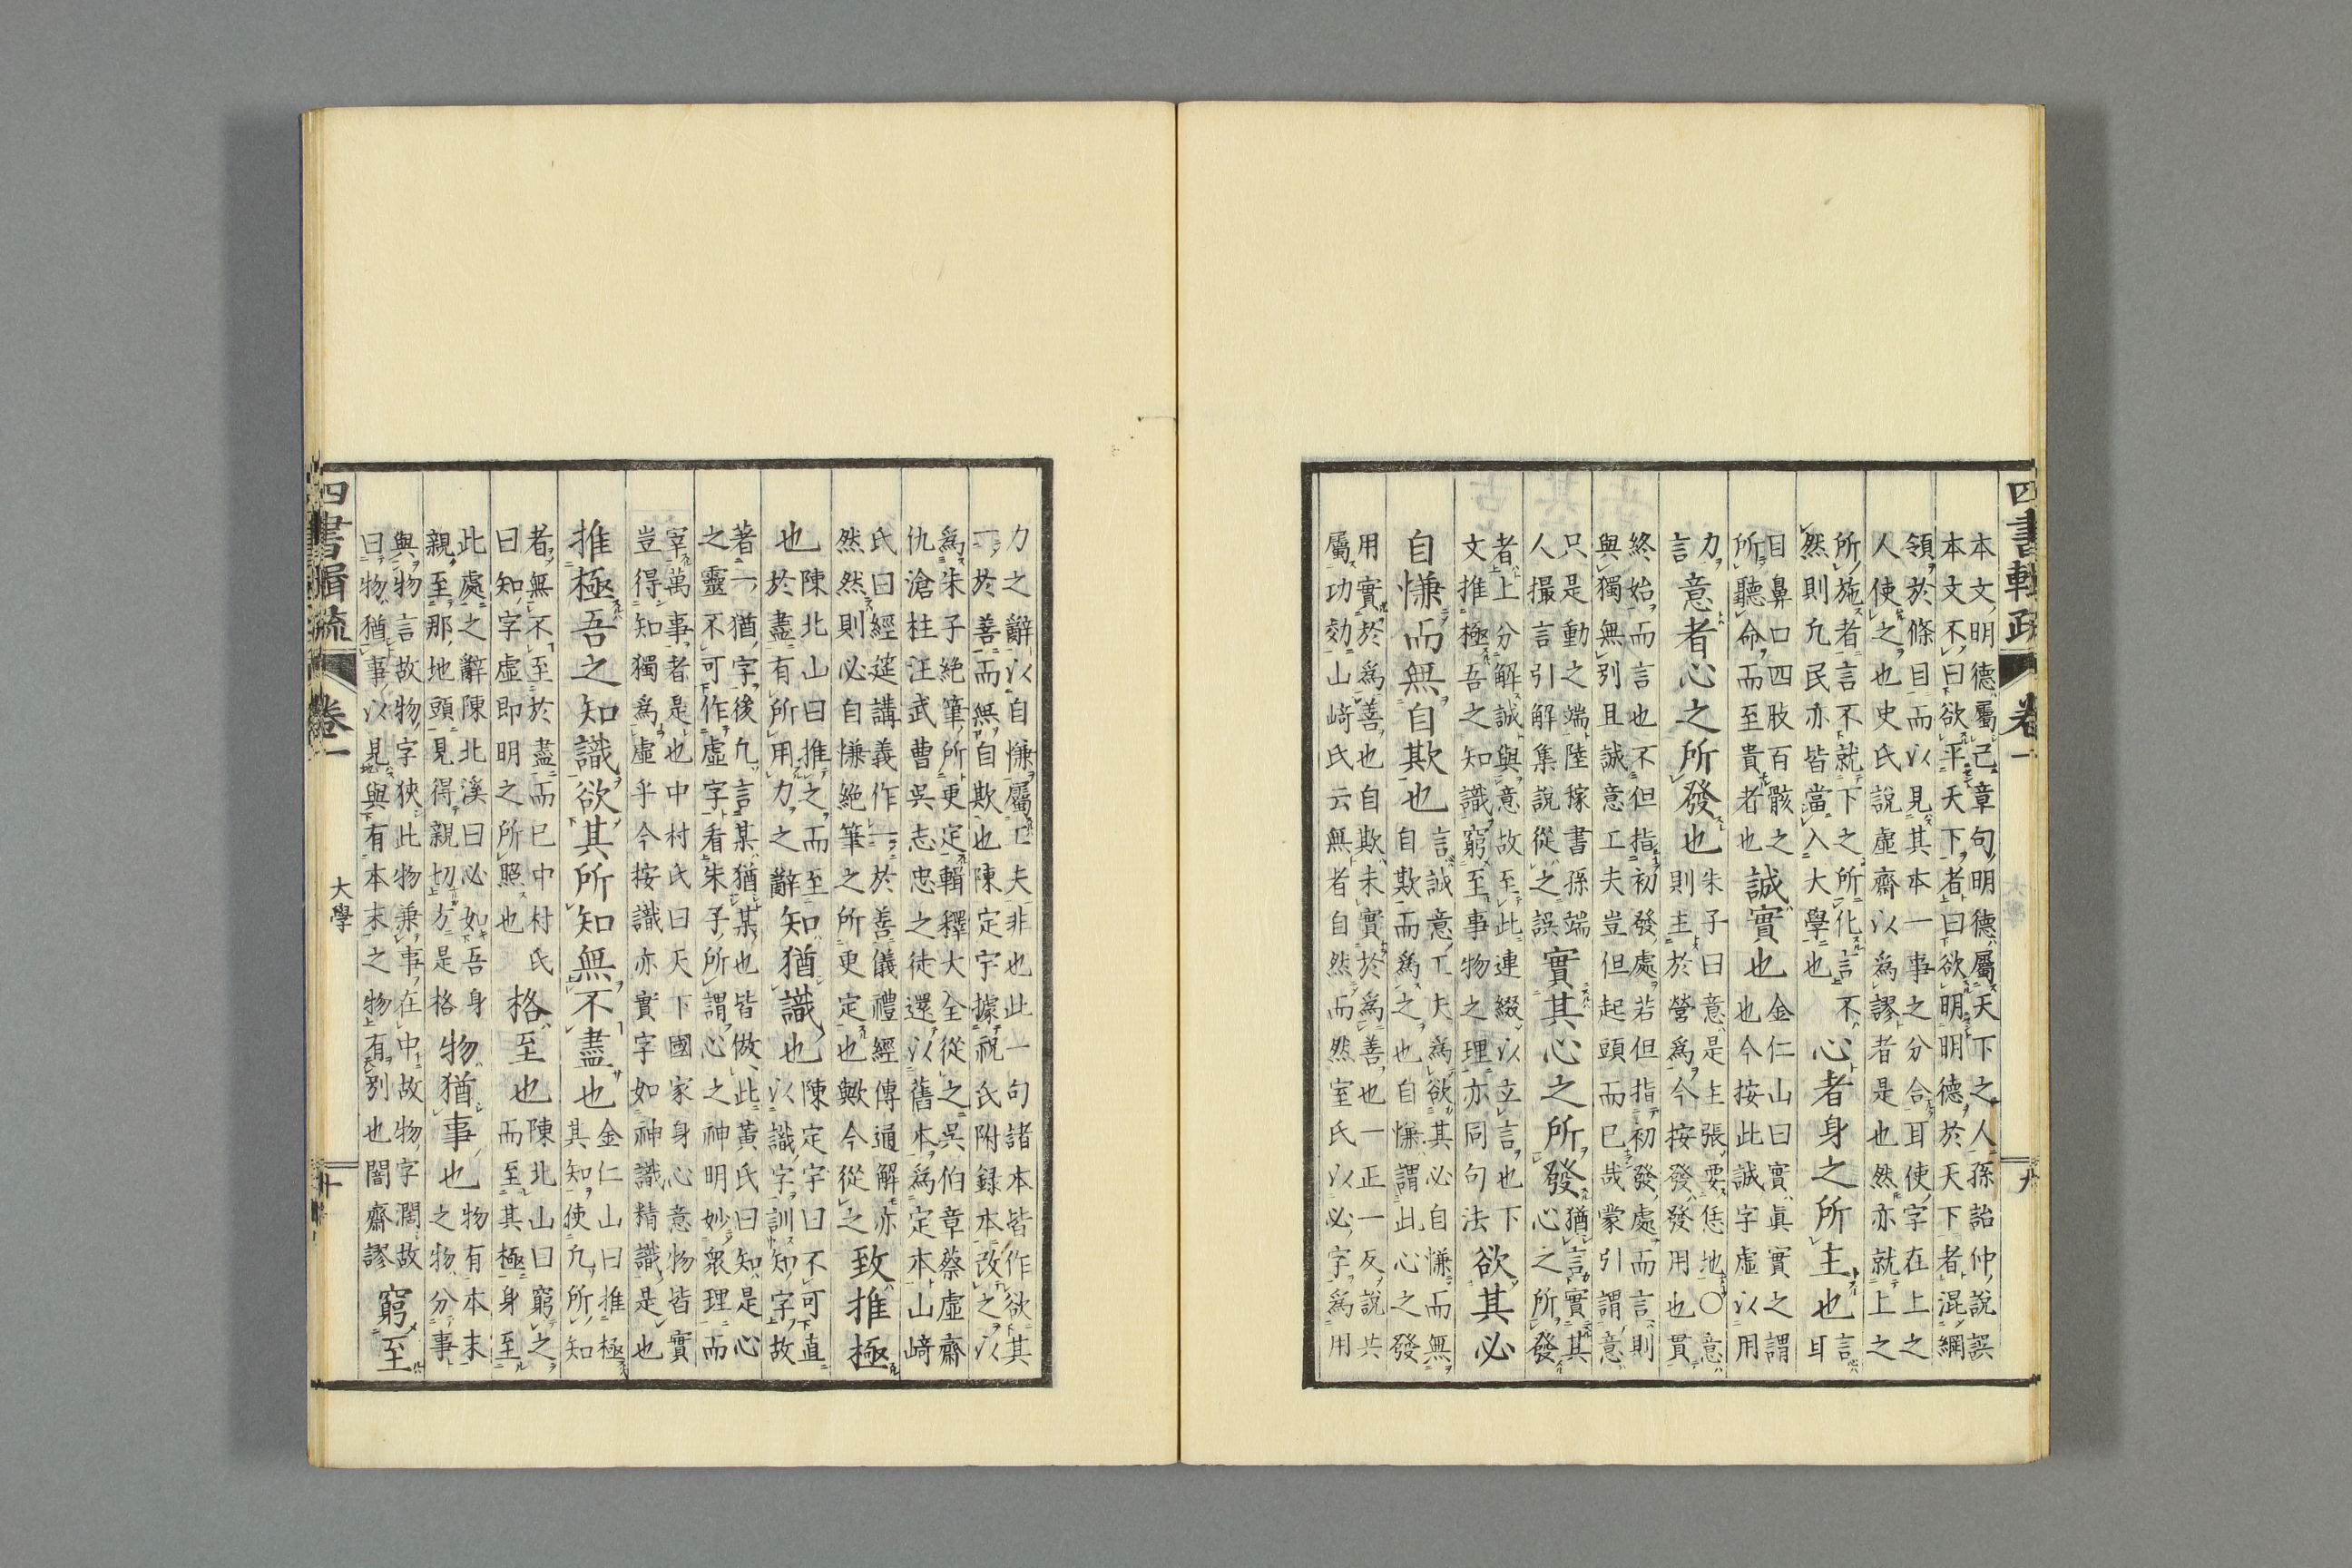 四書輯疏
卷一
九
本文明德屬己章句明德屬天下之人孫詒仲說誤
本文不曰欲平天下者曰欲明明德於天下者混綱
領於條目而以見其本一事之分合耳使字在上之
人使之也史氏說虛齋以爲謬者是也然亦就上之
所施者言不就下之所化言不
然則凡民亦皆當入大學也
心者身之所主也
言心
耳
目鼻口四肢百骸之
所聽命而至貴者也
誠實也
金仁山曰實眞實之謂
也今按此誠字虛以用
力
言
意者心之所發也
朱子曰意是主張要恁地○意
則主於營爲今按發發用也貫
終始而言也不但指初發處若但指初發處而言則
與獨無別且誠意工夫豈但起頭而已哉蒙引謂意
只是動之端陸稼書孫端
人撮言引解集說從之誤
實其心之所發
猶言實其
心之所發
者上分解誠與意故至此連綴以立言也下
文推極吾之知識窮至事物之理亦同句法
欲其必
自慊而無自欺也
言誠意工夫爲欲其必自慊而無
自欺而爲之也自慊謂此心之發
用實於爲善也自欺未實於爲善也一正一反說共
屬功効山﨑氏云無者自然而然室氏以必字爲用
力之辭以自慊屬工夫非也此一句諸本皆作欲其
一於善而無自欺也陳定宇據祝氏附録本改之以
爲朱子絶筆所更定輯釋大全從之吳伯章蔡虛齋
仇滄柱汪武曹吳志忠之徒還以舊本爲定本山﨑
氏曰經筵講義作一於善儀禮經傳通解亦
然然則必自慊絶筆之所更定也歟今從之
致推極
也
陳北山曰推之而至
於盡有所用力之辭
知猶識也
陳定宇曰不可直
以識字訓知字故
著一猶字後凡言某猶某也皆倣此黃氏曰知是心
之靈不可作虛字看朱子所謂心之神明妙衆理而
宰萬事者是也中村氏曰天下國家身心意物皆實
豈得知獨爲虛乎今按識亦實字如神識精識是也
推極吾之知識欲其所知無不盡也
金仁山曰推極
其知使凡所知
者無不至於盡而已中村氏
曰知字虛即明之所照也
格至也
陳北山曰窮之
而至其極身至
此處之辭陳北溪曰必如吾身
親至那地頭見得親切方是格
物猶事也
物有本末
之物分事
與物言故物字狹此物兼事在中故物字濶故
曰物猶事以見與有本末之物有別也闇齋謬
窮至
四書輯疏
卷一
大學
十